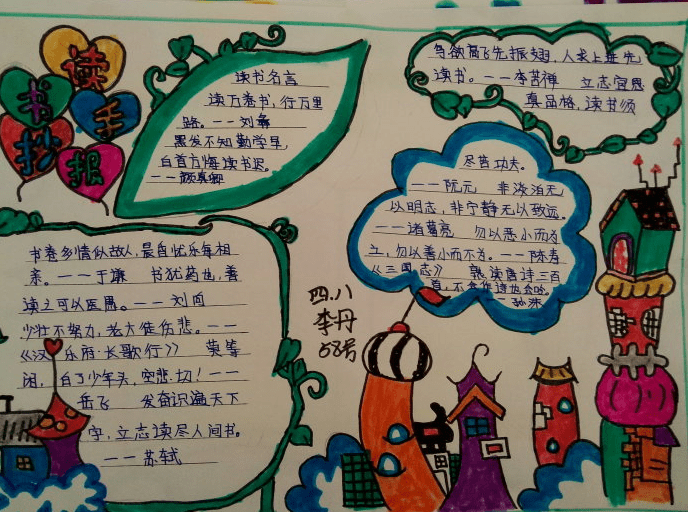 读书手抄报
读书名言
读万卷书，行万里
路。——刘彝
黑发不知勤学早，
白首方悔读书迟。
——颜真卿
鸟欲高飞先振翅，人求上进先
读书。——李苦禅　立志宜思
真品格，读书须
尽苦功夫。
——阮元　非淡泊无
以明志，非宁静无以致远。
——诸葛亮　勿以恶小而为
之，勿以善小而不为。——陈寿
《三国志》　熟读唐诗三百
首，不会作诗也会吟。
——孙洙
书卷多情似故人，晨昏忧乐每相
亲。——于谦　书犹药也，善
读之可以医愚。——刘向
少壮不努力，老大徒伤悲。——
《汉　乐府·长歌行》　莫等
闲，白了少年头，空悲切！——
岳飞　发奋识遍天下
字，立志读尽人间书。
——苏轼
四.八
李丹
58号